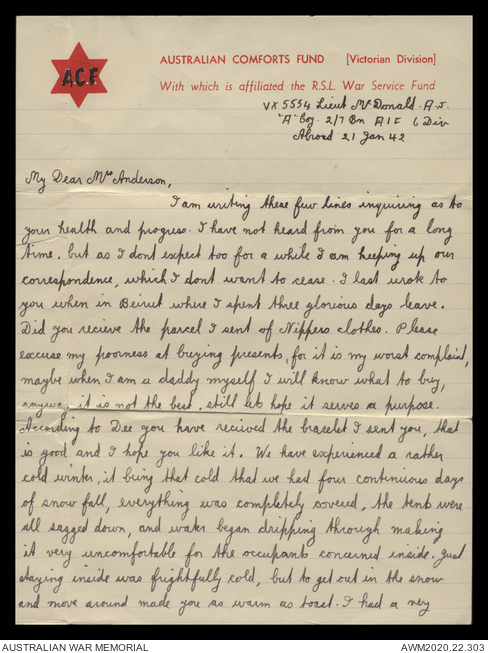 ACF
AUSTRALIAN COMFORTS FUND [Victorian Division]
With which is affiliated the R.S.L. War Service Fund
VX 5554 Lieut McDonald. A.J.
"A" Coy. 2/7 Bn AIF 6 Div
Abroad 21 Jan 42
My Dear Mrs Anderson,
I am writing these few lines inquiring as to
your health and progress. I have not heard from you for a long
time. but as I dont expect too for a while I am keeping up our
correspondence, which I dont want to cease. I last wrote to
you when in Beirut where I spent three glorious days leave.
Did you recieve the parcel I sent of Nippers clothes. Please
excuse my poorness at buying presents, for it is my worst complaint,
maybe when I am a daddy myself I will know what to buy,
anyway it is not the best, still lets hope it serves a purpose.
According to Dee you have recived the bracelet I sent you, that
is good and I hope you like it. We have experienced a rather
cold winter, it being that cold that we had four continuous days
of snow fall, everything was completely covered, the tents were
all sagged down, and water began dripping through making
it very uncomfortable for the occupants concerned inside. Just
staying inside was frightfully cold, but to get out in the snow
and move around made you as warm as toast. I had a very
AUSTRALIAN WAR MEMORIAL AWM2020.22.303